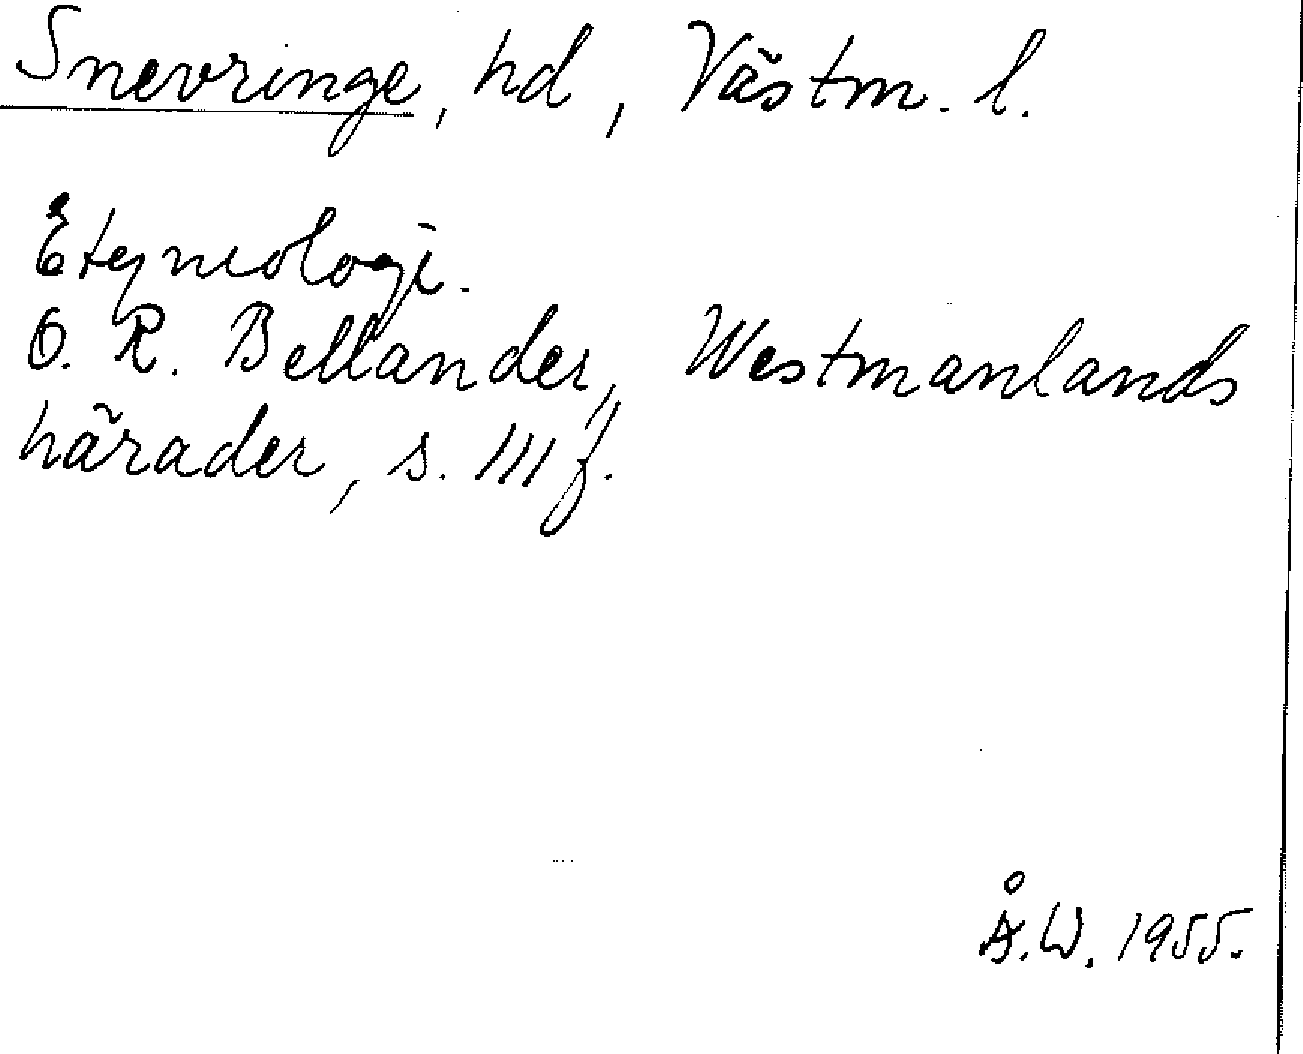 Snevringe, hd, Västm. l.
Etymologi.
O. R. Bellander, Westmanlands
härader, s. 111 f.
Å.W. 1955.